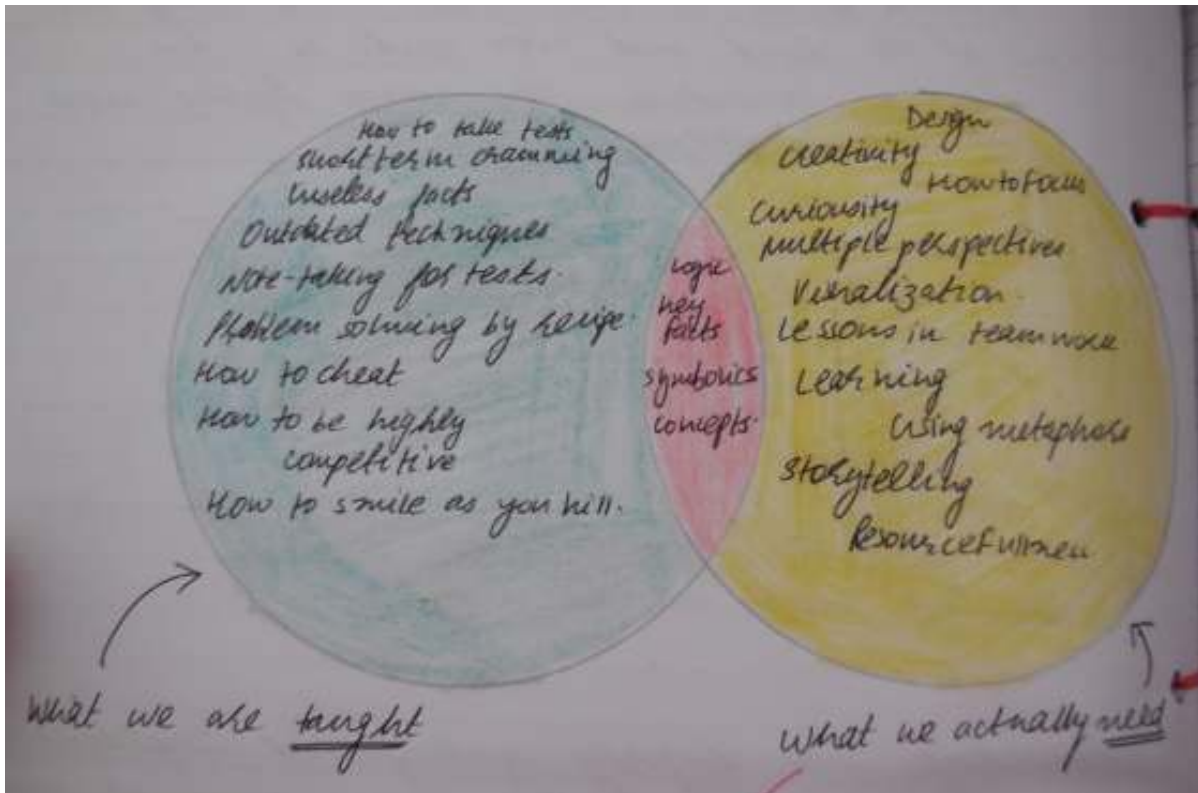 How to take tests.
Short term cramming
Useless facts
Outdated techniques
Note-taking for tests.
Problem solving by recipe.
How to cheat
How to be highly
competitive
How to smile as you kill.
logic
key
facts
symbolics
concepts.
Design
Creativity
How to focus
Curiousity
Multiple perspectives
Visualization.
Lessons in teamwork
Learning
Using metaphors
Storytelling
Resourcefullness
What we are taught
What we actually need